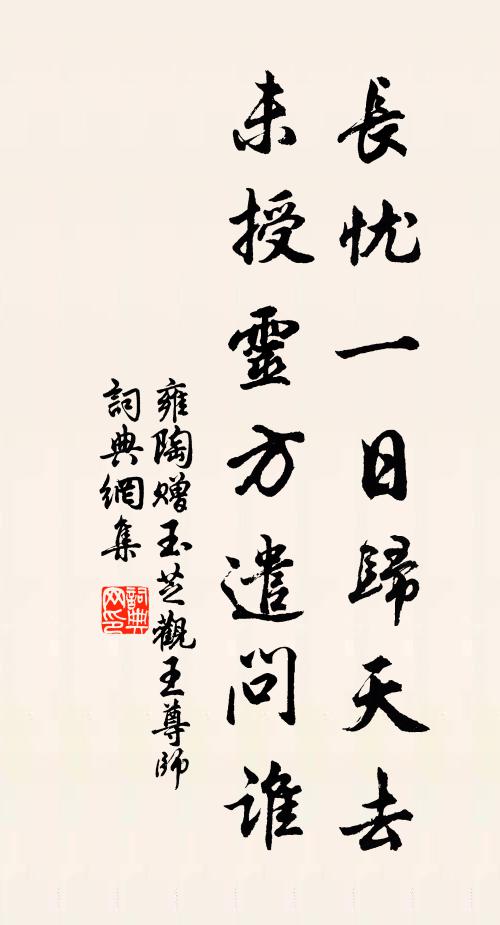 長忧一日歸天去
未授靈方遣問誰
雍陶赠玉芝觀王尊師
詞典網集
詞典网印